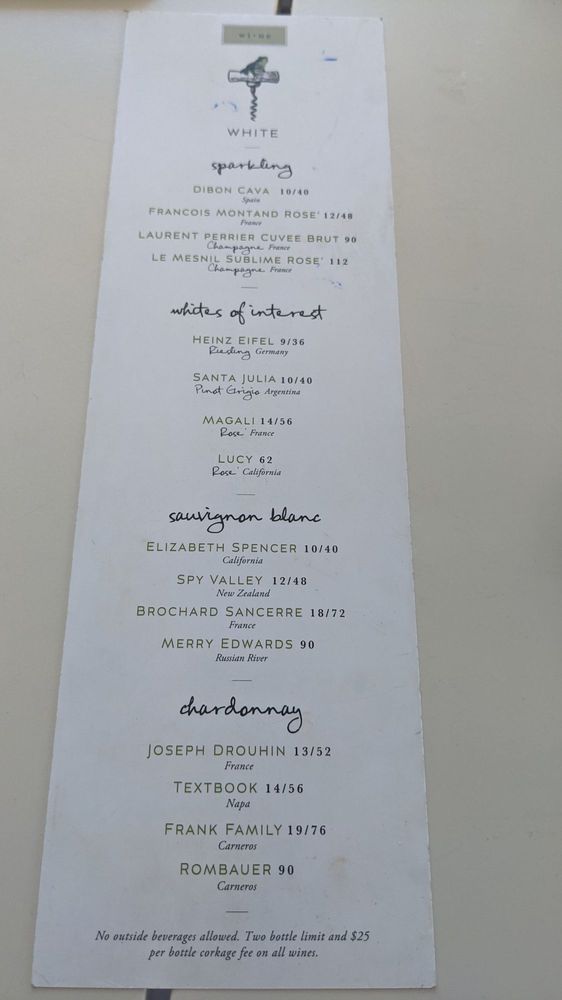 wine
WHITE
sparkling
DIBON CAVA 10/40
Spain
FRANCOIS MONTAND ROSE' 12/48
France
LAURENT PERRIER CUVEE BRUT 90
Champagne France
LE MESNIL SUBLIME ROSE' 112
Champagne France
whites of interest
HEINZ EIFEL 9/36
Riesling Germany
SANTA JULIA 10/40
Pinot Grigio Argentina
MAGALI 14/56
Rose' France
LUCY 62
Rose' California
sauvignon blanc
ELIZABETH SPENCER 10/40
California
SPY VALLEY 12/48
New Zealand
BROCHARD SANCERRE 18/72
France
MERRY EDWARDS 90
Russian River
chardonnay
JOSEPH DROUHIN 13/52
France
TEXTBOOK 14/56
Napa
FRANK FAMILY 19/76
Carneros
ROMBAUER 90
Carneros
No outside beverages allowed. Two bottle limit and $25
per bottle corkage fee on all wines.